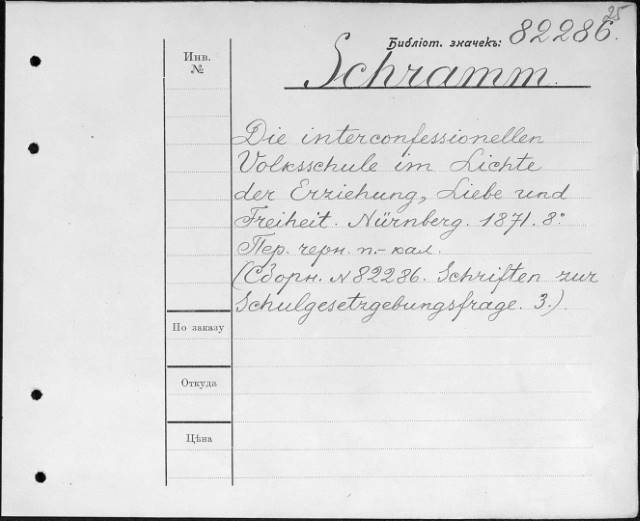 25
Библіот. значекъ: 82286.
Инв.
№
Schramm.
Die interconfessionellen
Volksschule im Lichte
der Erziehung, Liebe und
Freiheit. Nürnberg. 1871. 8°
Пер. черн. п.-кал.
(Сборн. № 82286. Schriften zur
Schulgesetzgebungsfrage. 3.).
По заказу
Откуда
Цѣна